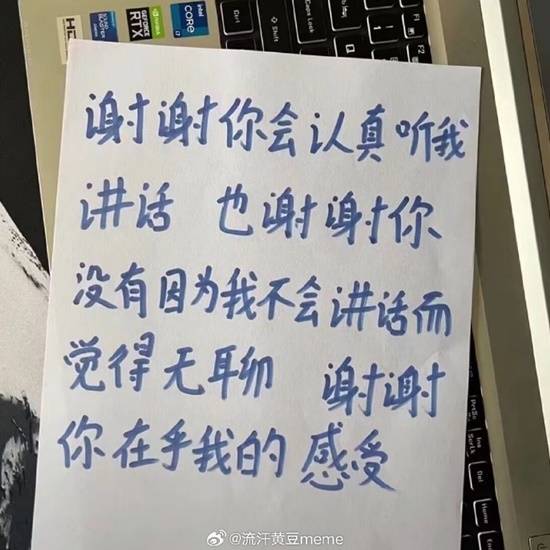 intel
CORE
i7
GEFORCE
RTX
Ctrl
谢谢你会认真听我
讲话 也谢谢你
没有因为我不会讲话而
觉得无聊 谢谢
你在乎我的 感受
Ctrl
@流汗黄豆meme